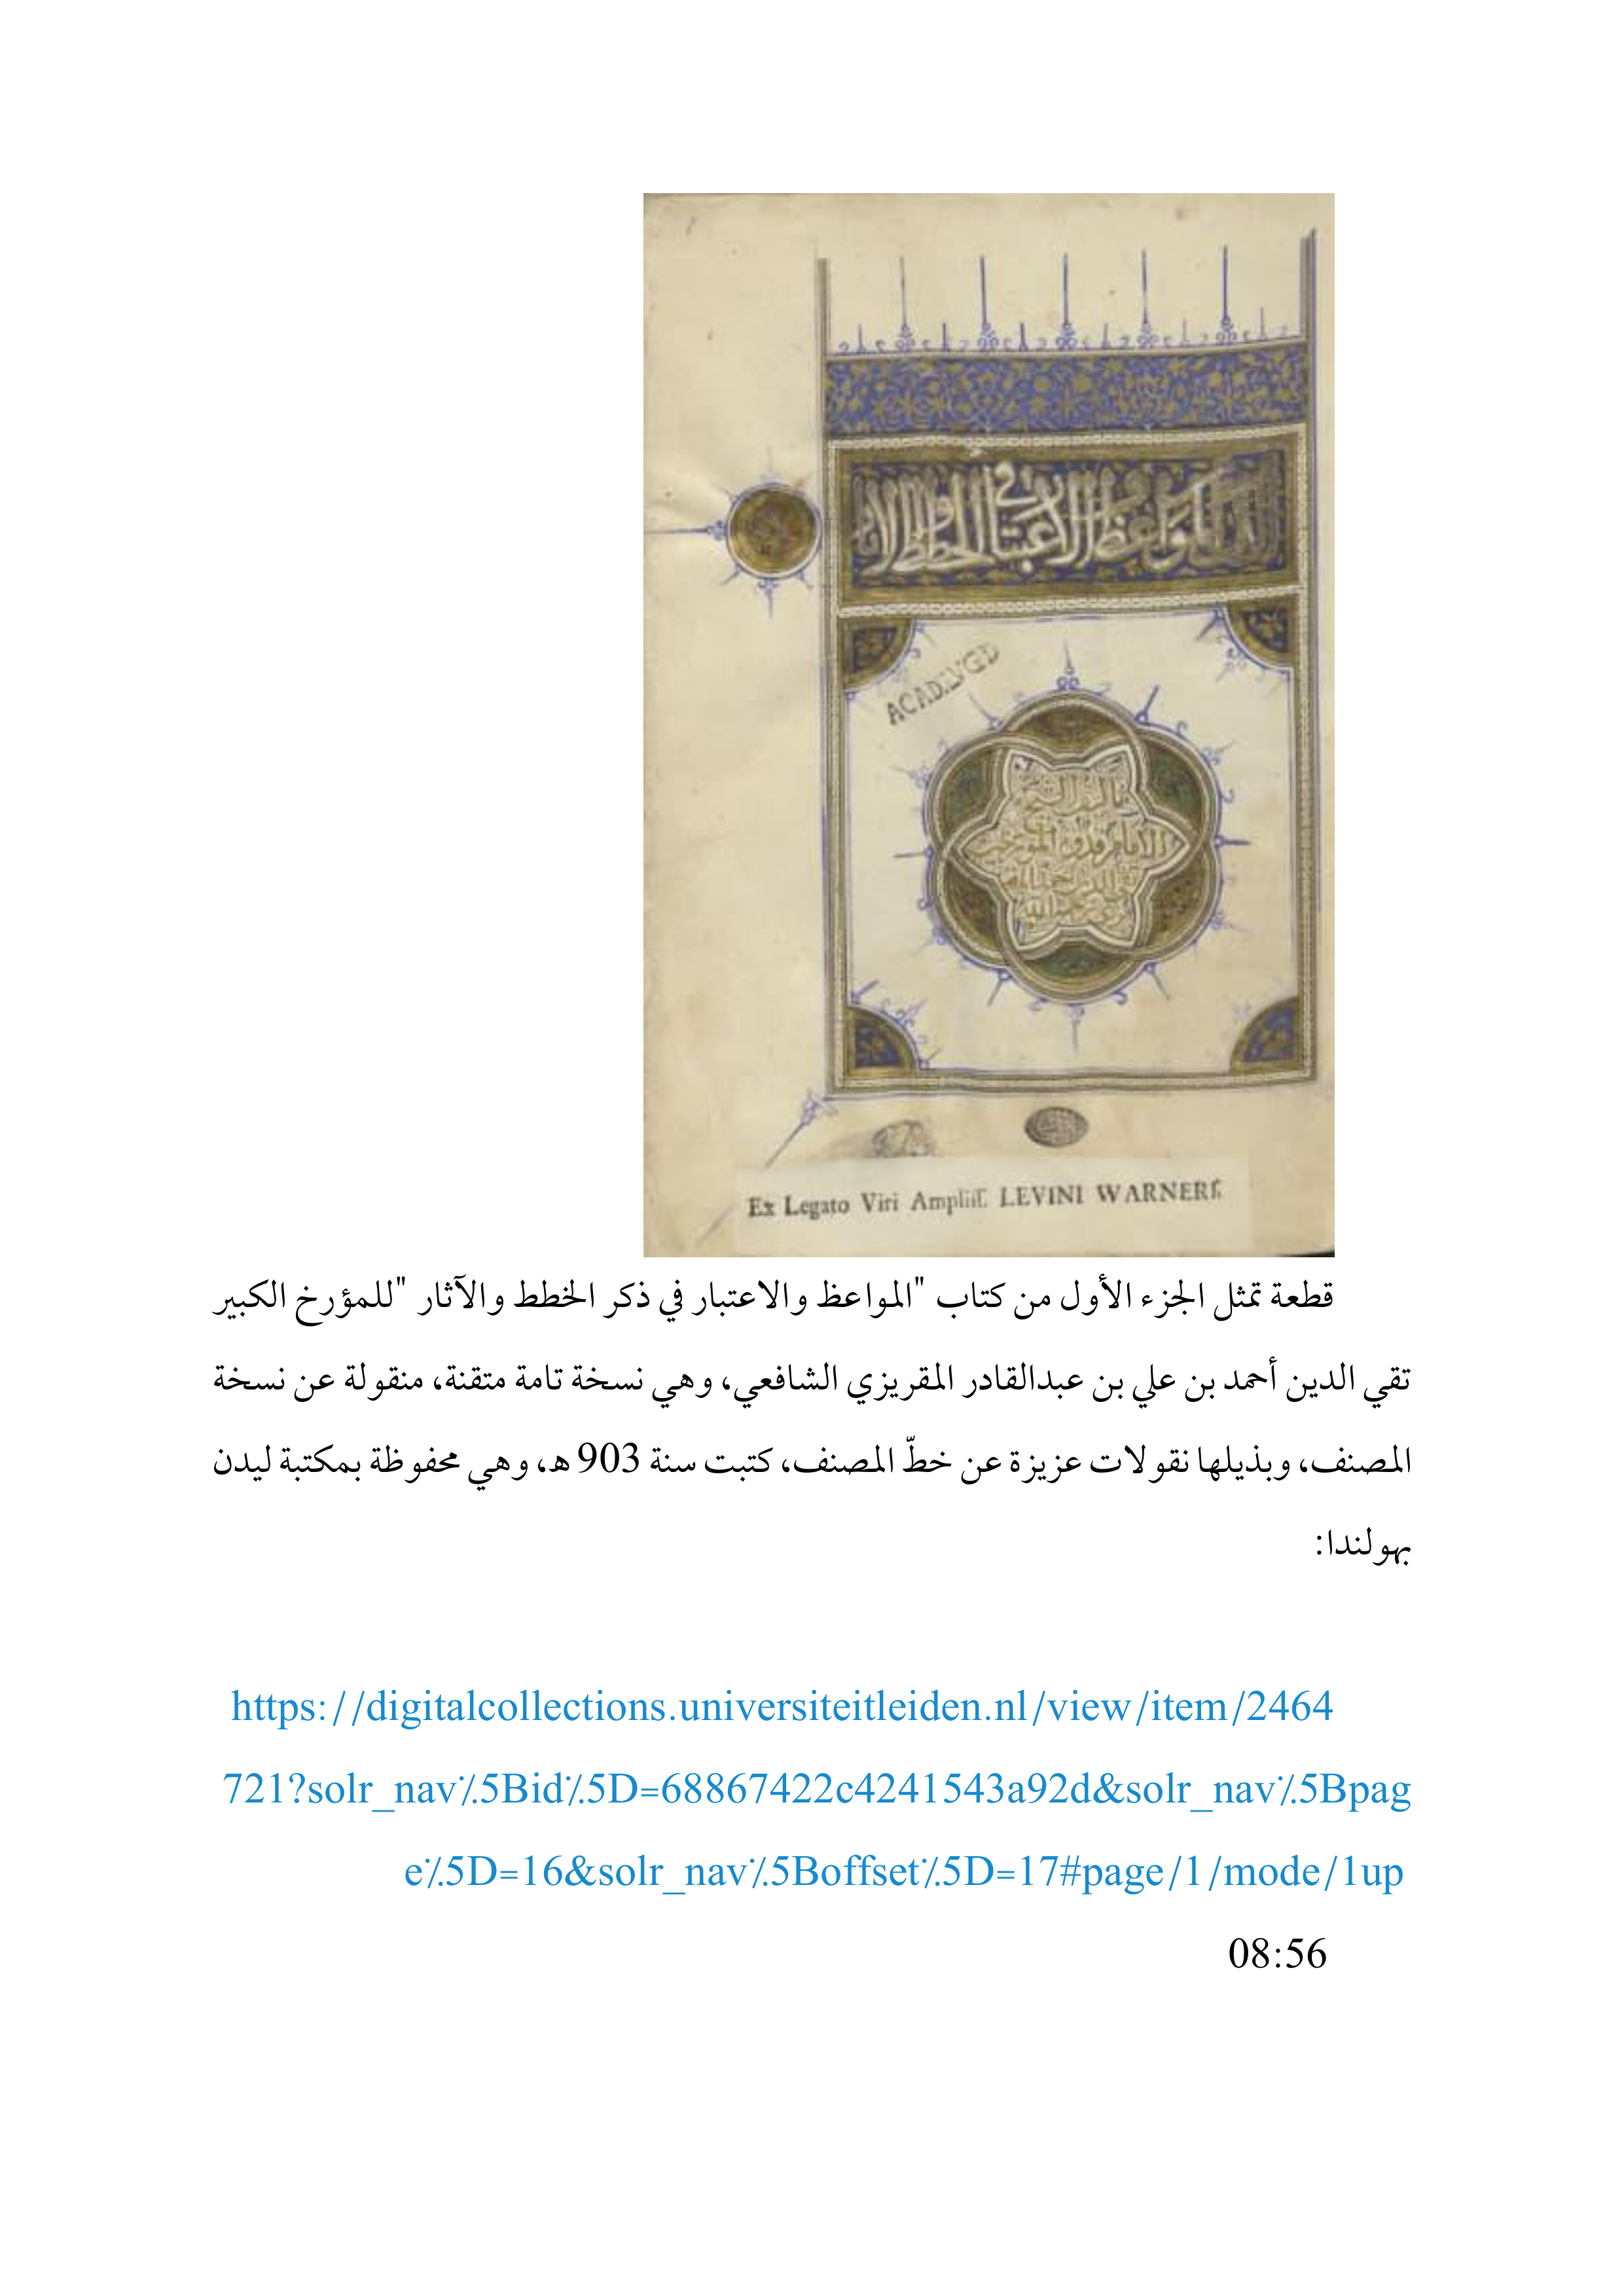 المواعظ والاعتبار في
الخطط والآثار
ACAD. LVGD
تأليف الشيخ
الامام قدوة المؤرخين
تقي الدين
Ex Legato Viri Ampliss. LEVINI WARNERI.
قطعة تمثل الجزء الأول من كتاب "المواعظ والاعتبار في ذكر الخطط والآثار "للمؤرخ الكبير
تقي الدين أحمد بن علي بن عبدالقادر المقريزي الشافعي، وهي نسخة تامة متقنة، منقولة عن نسخة
المصنف، وبذيلها نقولات عزيزة عن خطّ المصنف، كتبت سنة 903 هـ، وهي محفوظة بمكتبة ليدن
بهولندا:
https://digitalcollections.universiteitleiden.nl/view/item/2464
721?solr_nav٪5Bid٪5D=68867422c4241543a92d&solr_nav٪5Bpag
e٪5D=16&solr_nav٪5Boffset٪5D=17#page/1/mode/1up
08:56